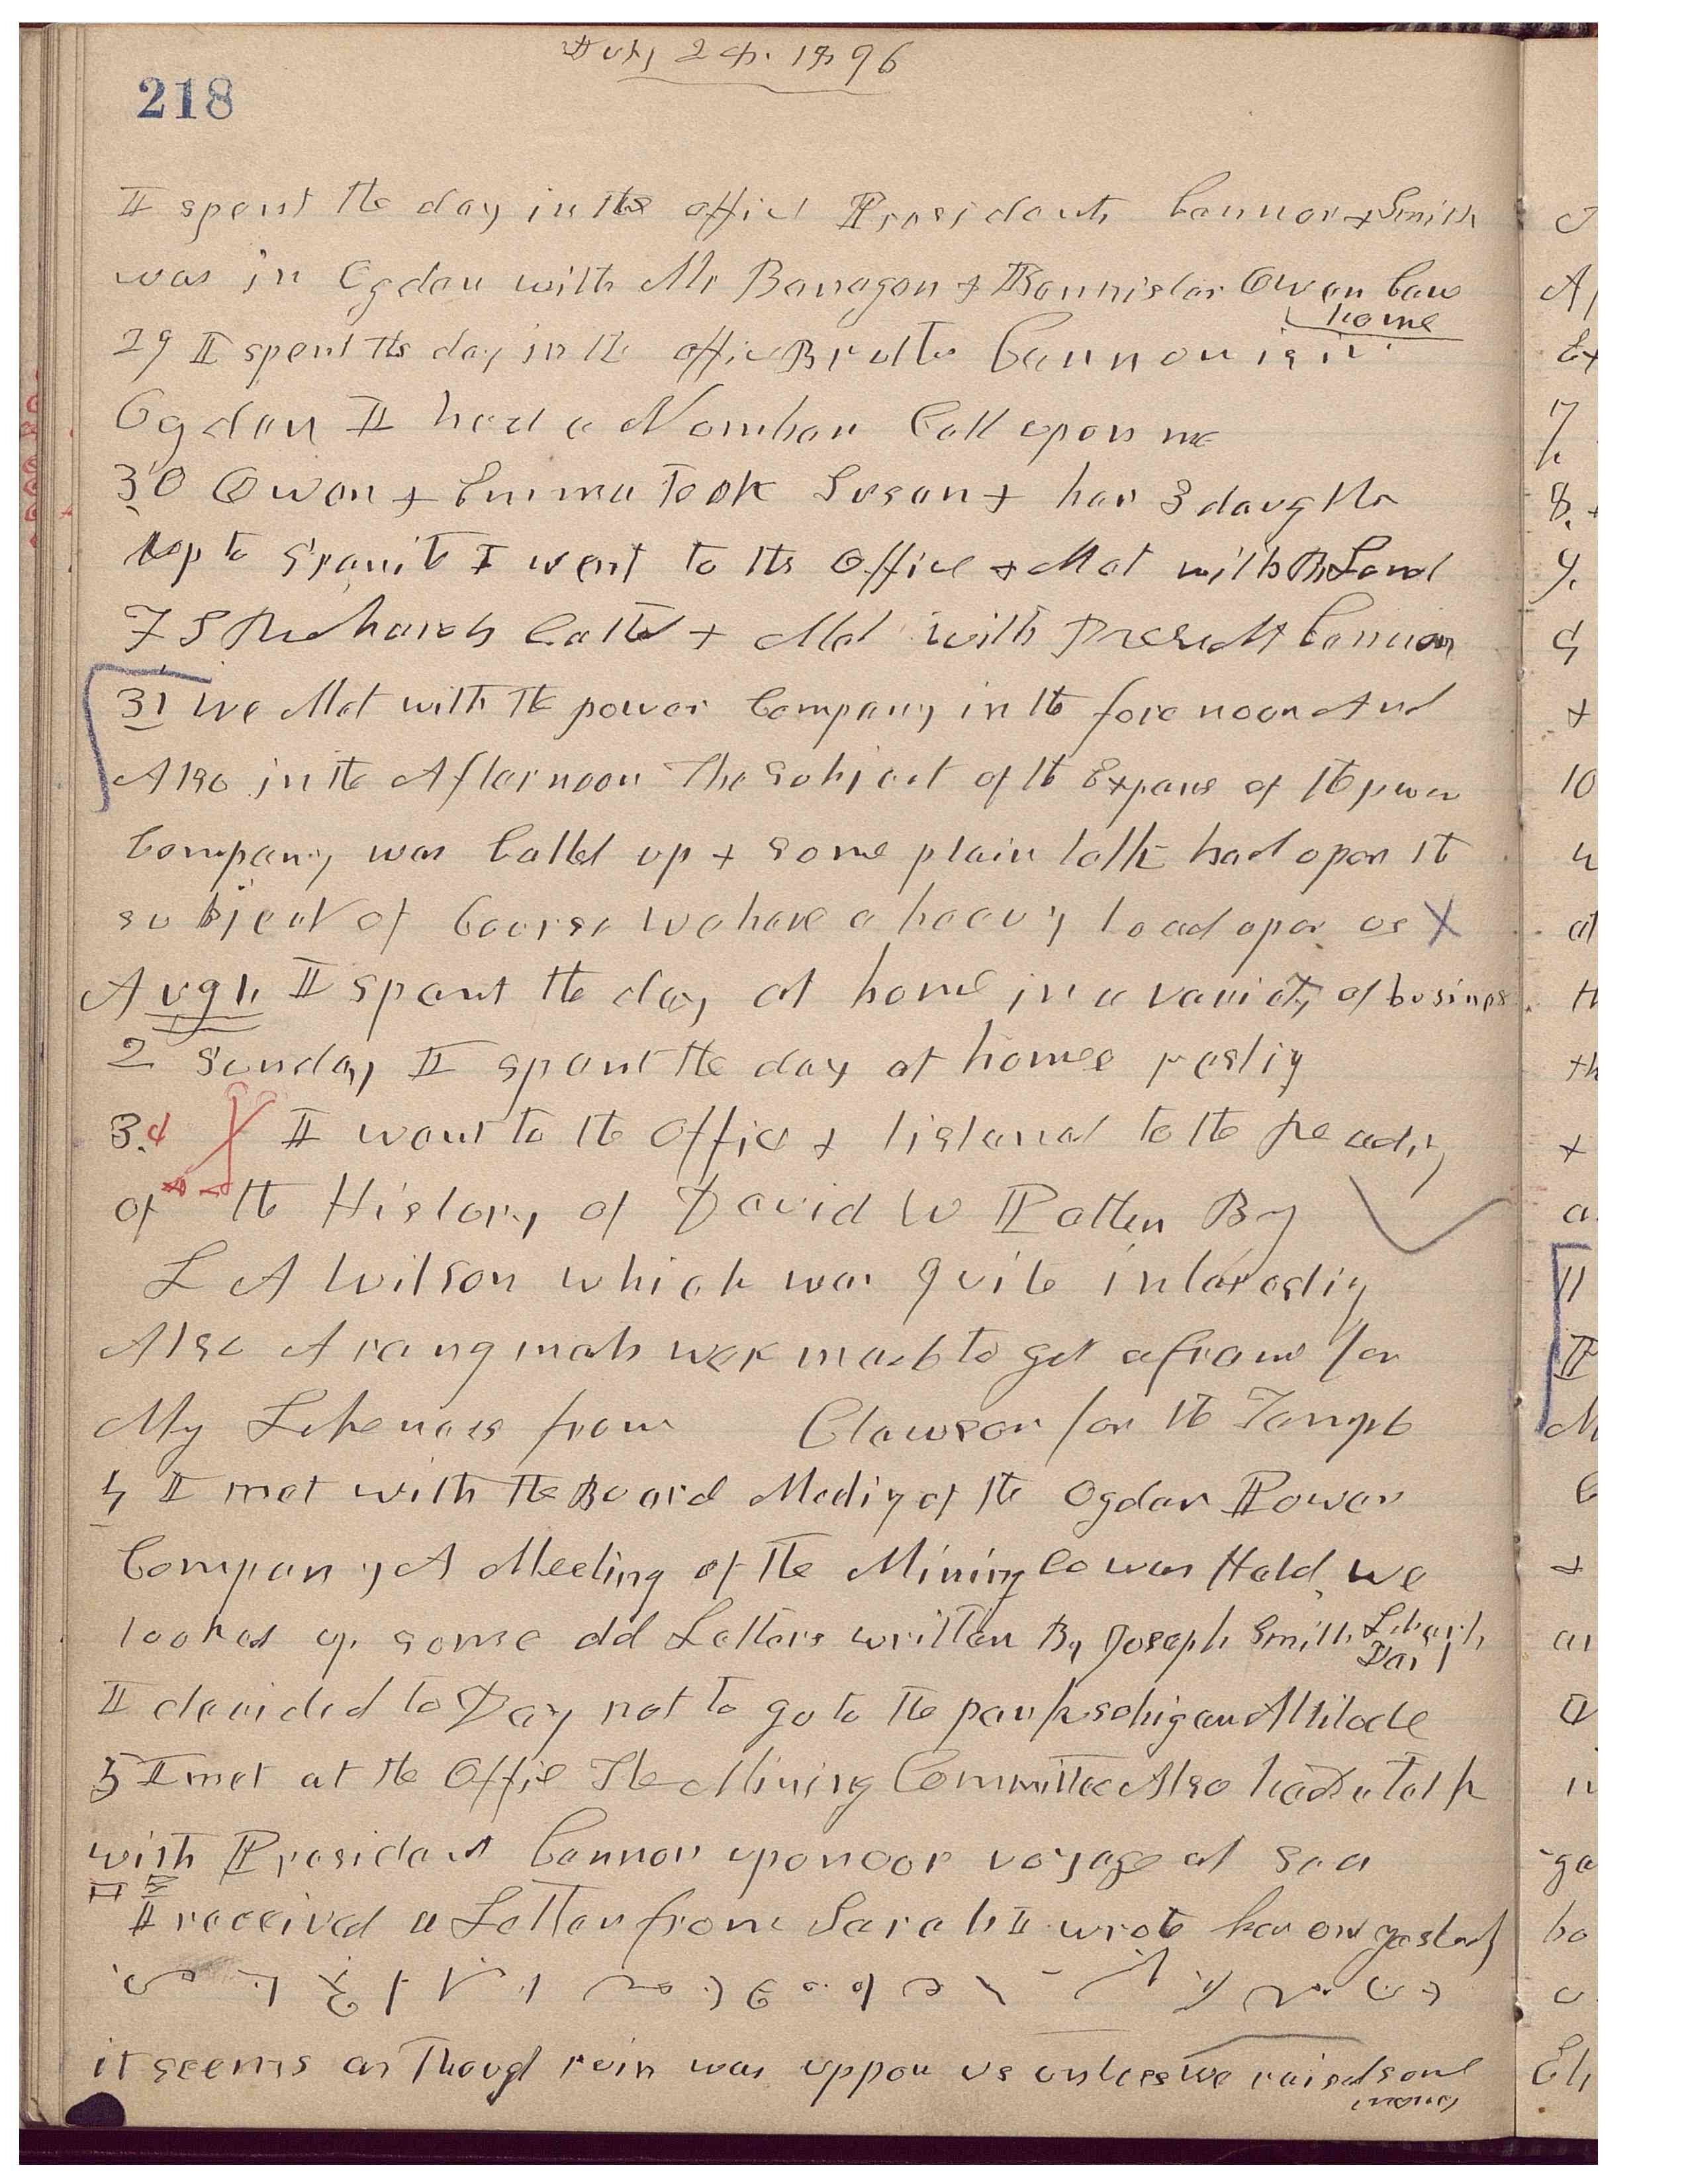 July 28. 1896
218
I spent the day in the office Presidents Cannon & Smith
was in Ogden with Mr Banagan & Bannister Owen Came
home
29 I spent the day in the office Brother Cannon is in
Ogden I had a Number Call upon me
30 Owen & Emma Took Susan & her 3 daughter
up to Granite I went to the Office & Met with
F S Richards Called & Met with President Cannon
31 We Met with the power Company in the fore noon And
Also in the Afternoon The subject of the Expens of the power
Company was Called up & some plain talk had upon the
subject of Course we have a heavy load upon us X
Aug 1. I spent the day at home in a variety of business
2 Sunday I spent the day at home resting
3.d I went to the office & listened to the reading
of the History of David W Patten By
L A Wilson which was quite interesting
Also Arangments were made to get a frame for
My Likeness from Clawson for the Temple
4 I met with the Board Meeting of the Ogden Power
Company A Meeting of the Mining Co was Held we
looked up some old Letters written By Joseph Smith Liberty
I decided to Day not to go to the park so high an Altitude
5 I met at the Office The Mining Committee Also had a talk
with President Cannon upon our voyage at sea
I received a Letter from Sarah I wrote her one yesterday
it seems as Though ruin was uppon us unless we raised some
money